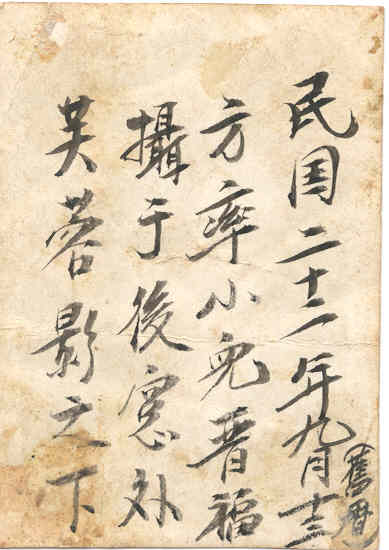 民国二十一年九月十三(舊曆)
方率小兒晋福
攝于後窓外
芙蓉影之下